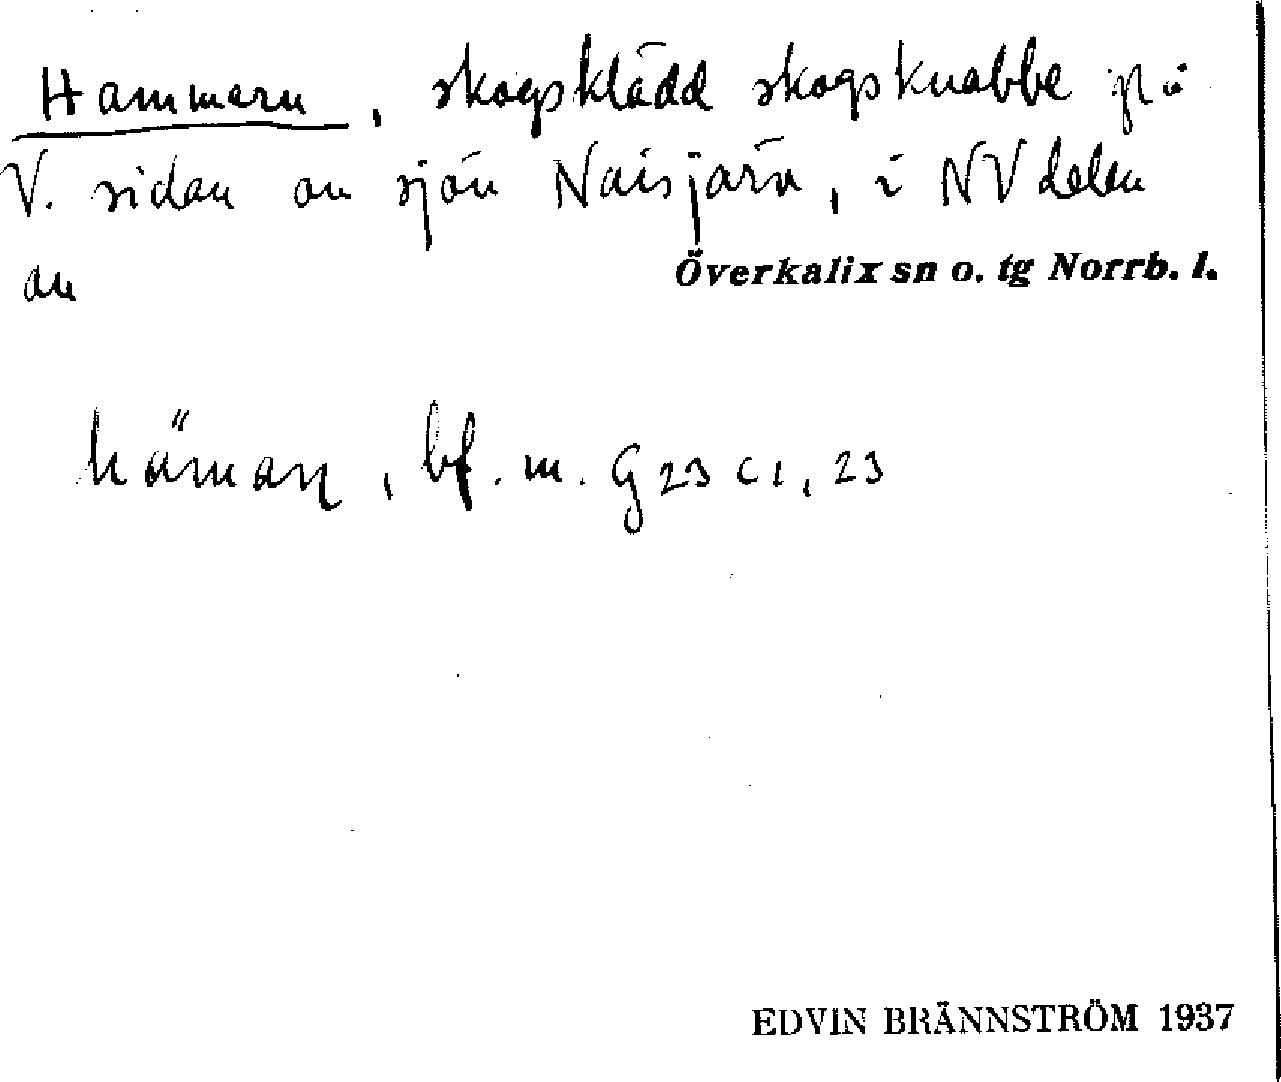 Hammern, skogsklädd skogsknabbe på
V. sidan av sjön Naisjärv, i NV delen
av Överkalix sn o. tg Norrb. l.
hä̀maɳ, bf. m. G 23 c 1, 23
EDVIN BRÄNNSTRÖM 1937